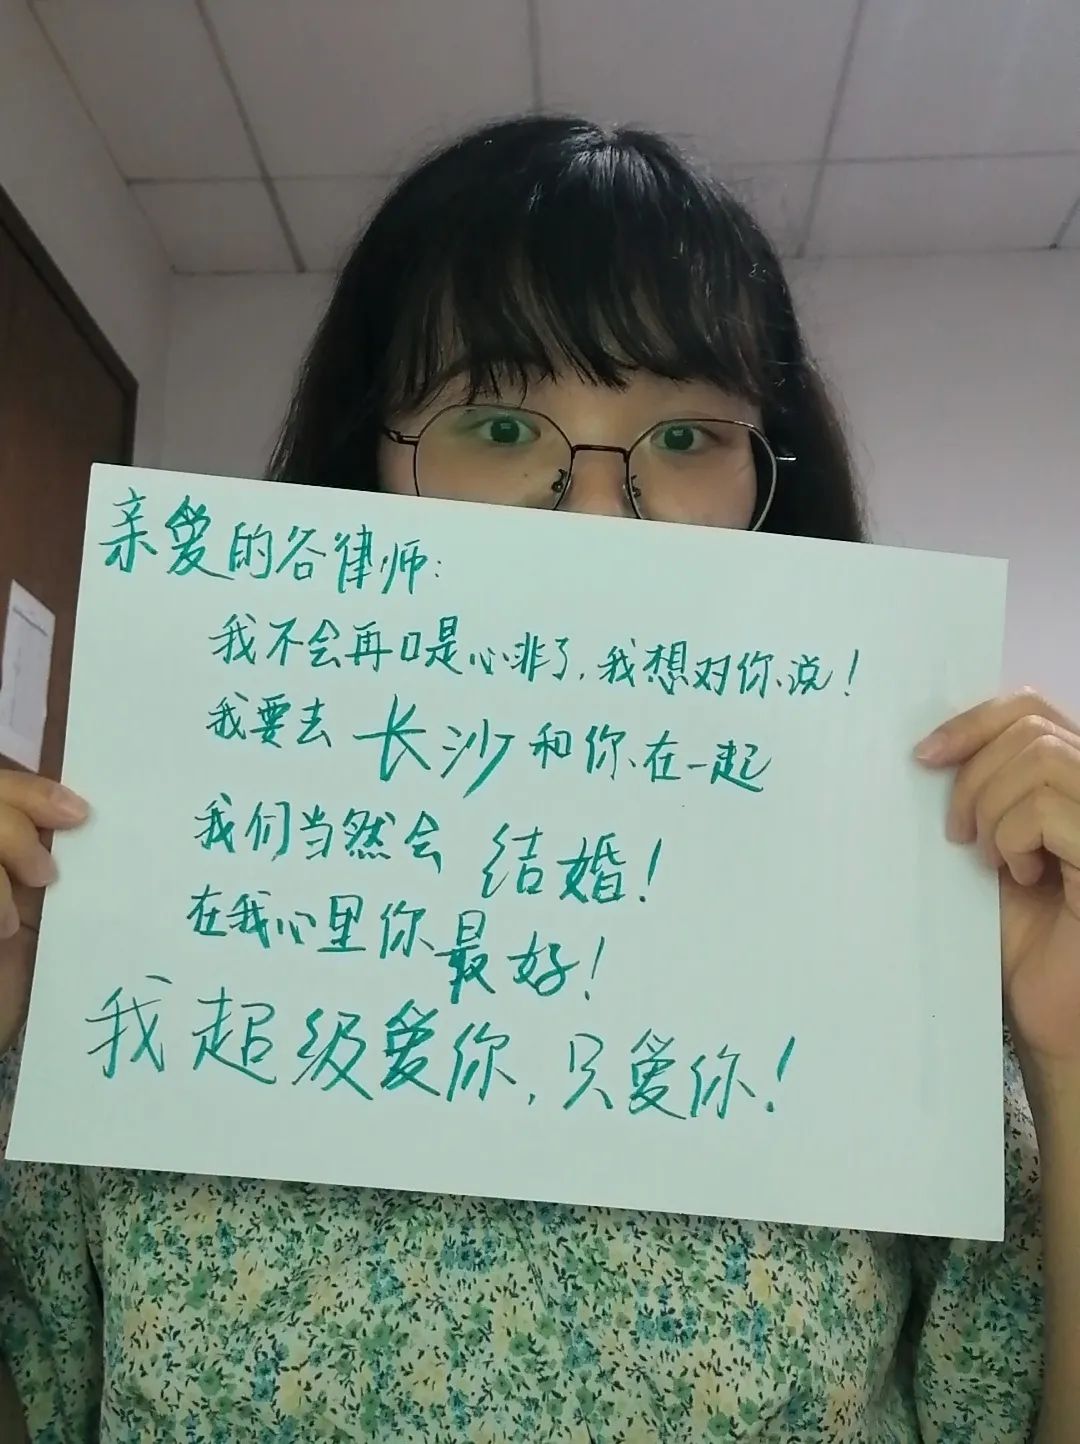 亲爱的谷律师：
我不会再口是心非了，我想对你说！
我要去长沙和你在一起
我们当然会结婚！
在我心里你最好！
我超级爱你，只爱你！